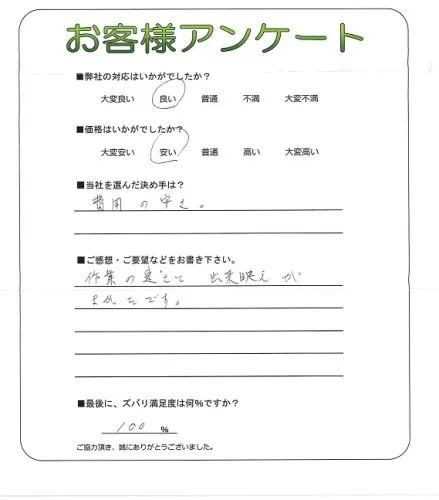 お客様アンケート
■弊社の対応はいかがでしたか?
大変良い 良い 普通 不満 大変不満
■価格はいかがでしたか?
大変安い 安い 普通 高い 大変高い
■当社を選んだ決め手は?
費用の安さ。
■ご感想・ご要望などをお書き下さい。
作業の 出来映えが
よかったです。
■最後に、ズバリ満足度は何%ですか?
100 %
ご協力頂き、誠にありがとうございました。